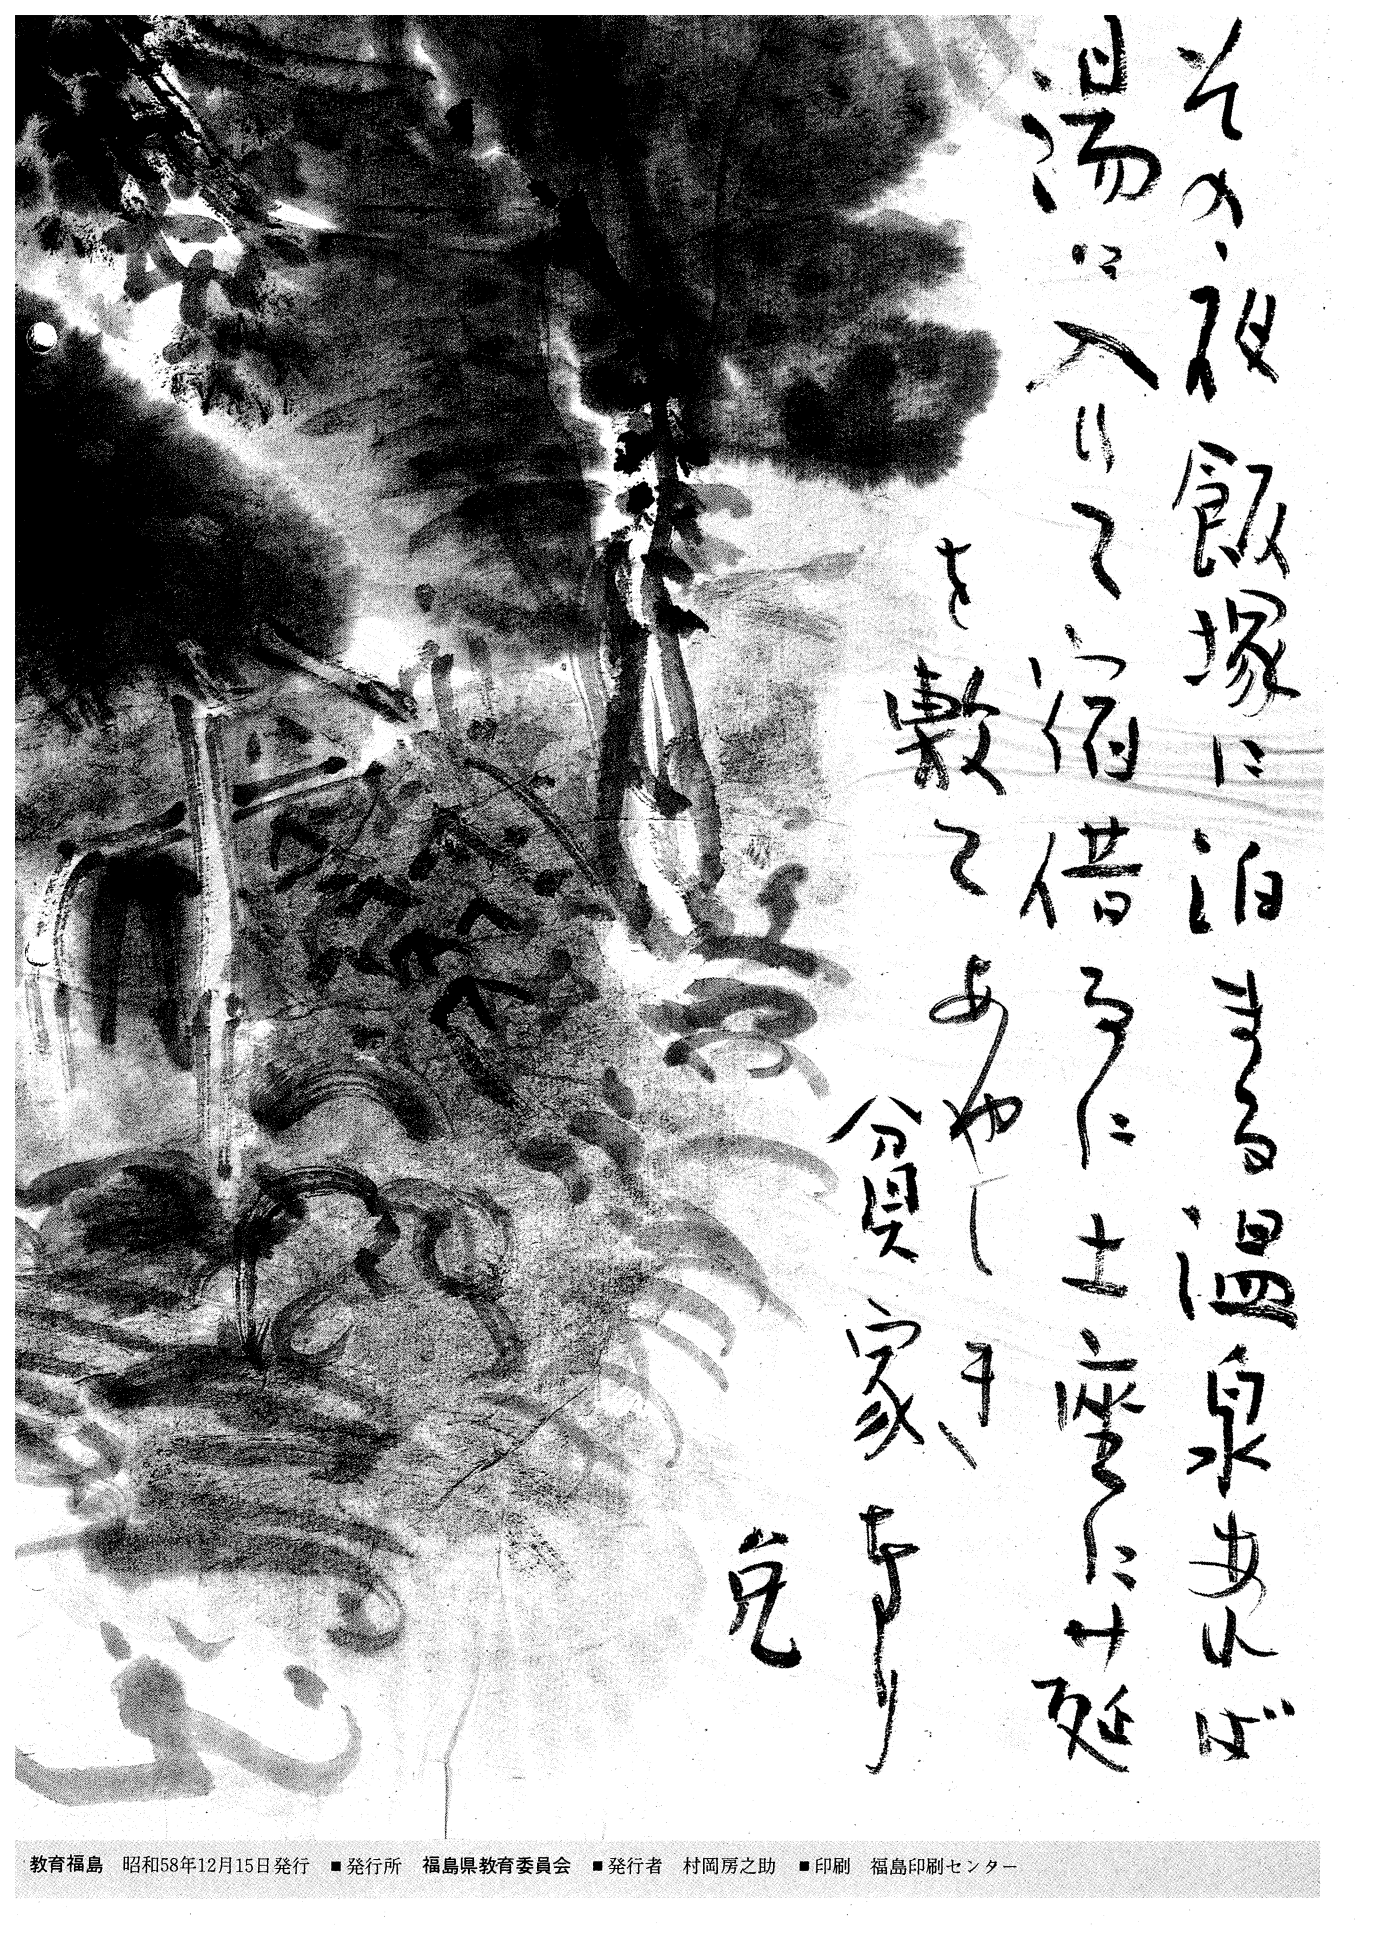 その夜飯塚に泊まる温泉あれば
湯に入りて宿借るに土座に莚
を敷てあやしき
貧家なり
教育福島 昭和58年12月15日発行 ■発行所 福島県教育委員会 ■発行者 村岡房之助 ■印刷 福島印刷センター